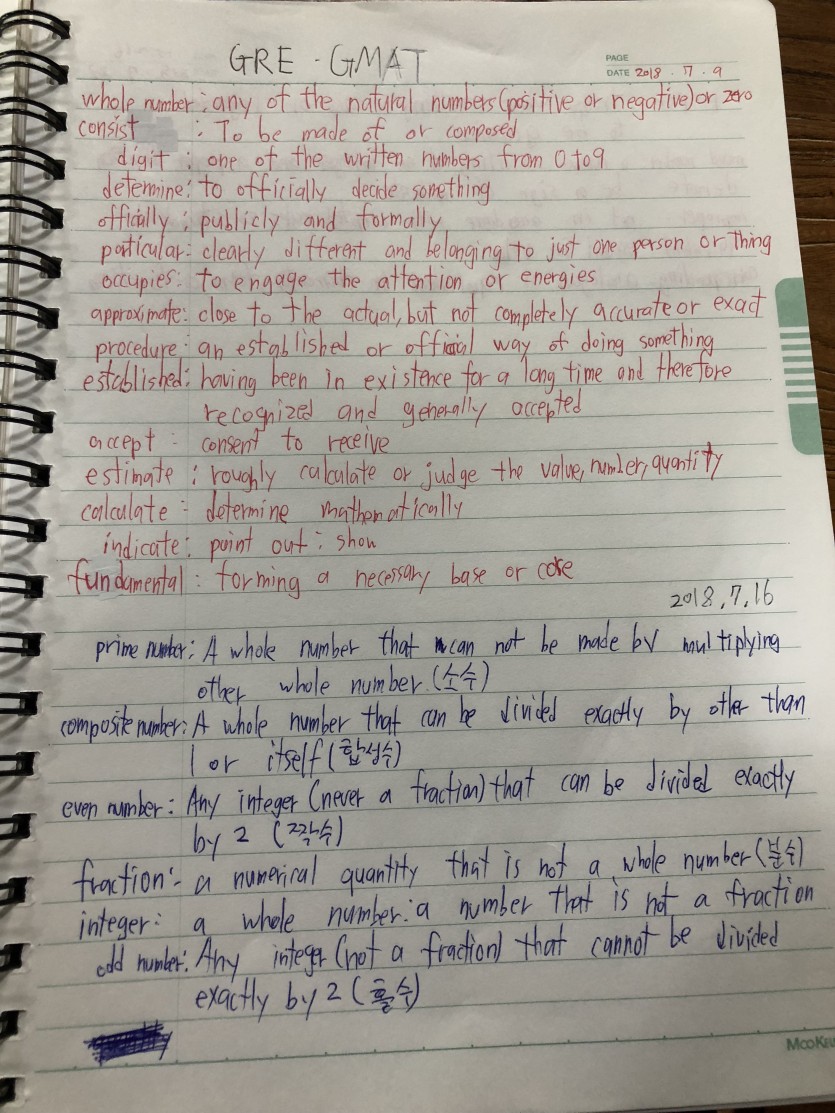 GRE - GMAT
PAGE
DATE 2018 . 7 . 9
whole number : any of the natural numbers (positive or negative) or zero
consist : To be made of or composed
digit : one of the written numbers from 0 to 9
determine : to officially decide something
officially : publicly and formally
particular : clearly different and belonging to just one person or thing
occupies : to engage the attention or energies
approximate : close to the actual, but not completely accurate or exact
procedure : an established or official way of doing something
established : having been in existence for a long time and therefore
recognized and generally accepted
accept : consent to receive
estimate : roughly calculate or judge the value, number, quantity
calculate : determine mathematically
indicate : point out : show
fundamental : forming a necessary base or core
2018.7.16
prime number : A whole number that can not be made by multiplying
other whole number (소수)
composite number : A whole number that can be divided exactly by other than
1 or itself (합성수)
even number : Any integer (never a fraction) that can be divided exactly
by 2 (짝수)
fraction : a numerical quantity that is not a whole number (분수)
integer : a whole number : a number that is not a fraction
odd number : Any integer (not a fraction) that cannot be divided
exactly by 2 (홀수)